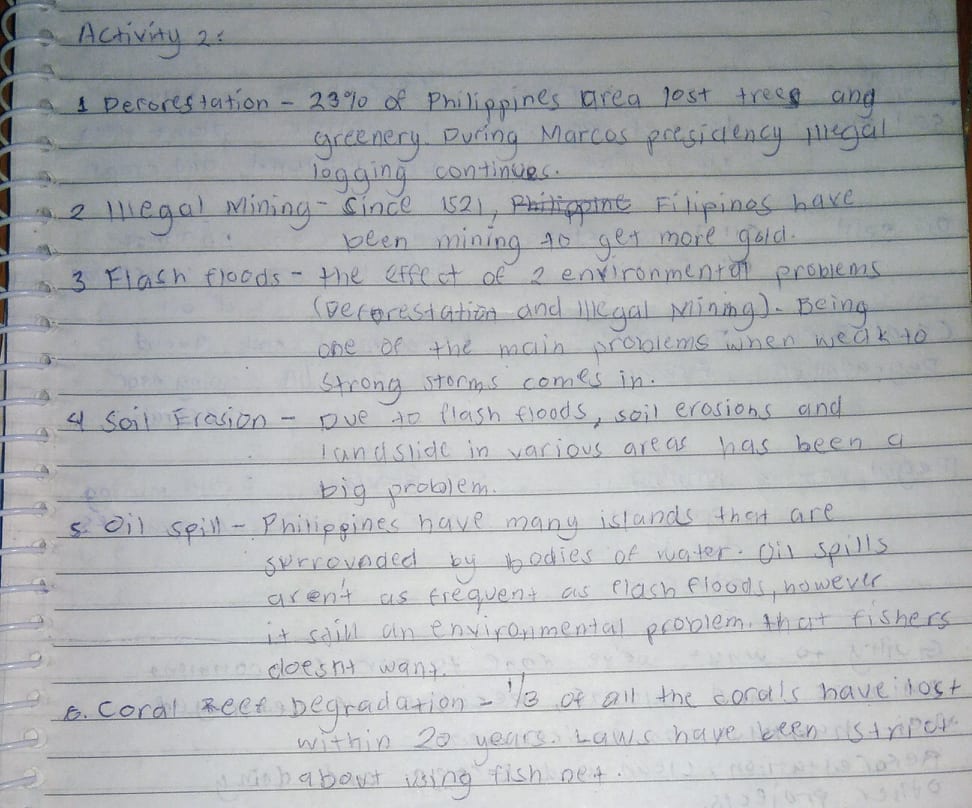 Activity 2:
1 Deforestation - 23% of Philippines area lost trees and
greenery. During Marcos presidency illegal
logging continues.
2 Illegal Mining - Since 1521, Philippine Filipinos have
been mining to get more gold.
3 Flash floods - the effect of 2 environmental problems
(Deforestation and Illegal Mining). Being
one of the main problems when weak to
strong storms comes in.
4 Soil Erosion - Due to flash floods, soil erosions and
landslide in various areas has been a
big problem.
5 Oil spill - Philippines have many islands that are
surrounded by bodies of water. Oil spills
aren't as frequent as flash floods, however
it still an environmental problem that fishers
doesn't want.
6. Coral Reef Degradation - 1/3 of all the corals have lost
within 20 years. Laws have been strict
about using fish net.